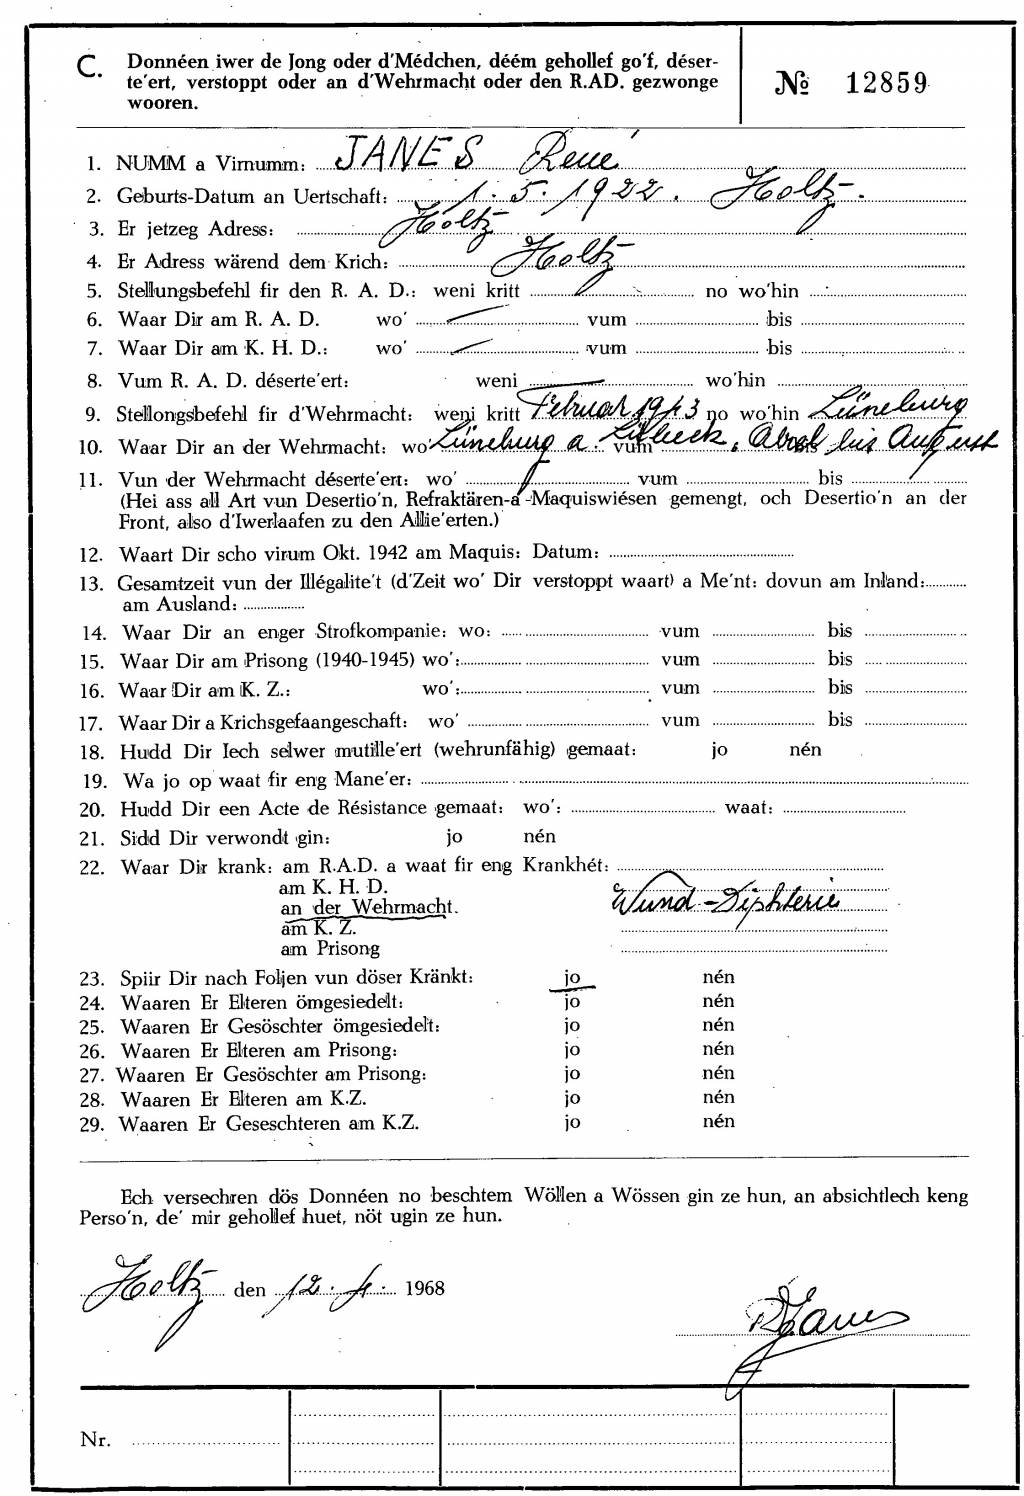 C. Donnéen iwer de Jong oder d'Médchen, déém gehollef go'f, déser-
te'ert, verstoppt oder an d'Wehrmacht oder den R.AD. gezwonge
wooren.
№ 12859
1. NUMM a Virnumm: JANES René
2. Geburts-Datum an Uertschaft: 1. 5. 1922. Holtz.
3. Er jetzeg Adress: Holtz
4. Er Adress wärend dem Krich: Holtz
5. Stellungsbefehl fir den R. A. D.: weni kritt no wo'hin
6. Waar Dir am R. A. D. wo' — vum bis
7. Waar Dir am K. H. D.: wo' — vum bis
8. Vum R. A. D. déserte'ert: weni — wo'hin
9. Stellongsbefehl fir d'Wehrmacht: weni kritt Februar 1943 no wo'hin Lüneburg
10. Waar Dir an der Wehrmacht: wo' Lüneburg a vum bis August
11. Vun der Wehrmacht déserte'ert: wo' vum bis
(Hei ass all Art vun Desertio'n, Refraktären-a -Maquiswiésen gemengt, och Desertio'n an der
Front, also d'Iwerlaafen zu den Allie'erten.)
12. Waart Dir scho virum Okt. 1942 am Maquis: Datum:
13. Gesamtzeit vun der Illégalite't (d'Zeit wo' Dir verstoppt waart) a Me'nt: dovun am Inland:
am Ausland:
14. Waar Dir an enger Strofkompanie: wo: vum bis
15. Waar Dir am Prisong (1940-1945) wo': vum bis
16. Waar Dir am K. Z.: wo': vum bis
17. Waar Dir a Krichsgefaangeschaft: wo' vum bis
18. Hudd Dir Iech selwer mutille'ert (wehrunfähig) gemaat: jo nén
19. Wa jo op waat fir eng Mane'er:
20. Hudd Dir een Acte de Résistance gemaat: wo': waat:
21. Sidd Dir verwondt gin: jo nén
22. Waar Dir krank: am R.A.D. a waat fir eng Krankhét:
am K. H. D.
an der Wehrmacht. Wund-Diphterie
am K. Z.
am Prisong
23. Spiir Dir nach Foljen vun döser Kränkt: jo nén
24. Waaren Er Elteren ömgesiedelt: jo nén
25. Waaren Er Gesöschter ömgesiedelt: jo nén
26. Waaren Er Elteren am Prisong: jo nén
27. Waaren Er Gesöschter am Prisong: jo nén
28. Waaren Er Elteren am K.Z. jo nén
29. Waaren Er Geseschteren am K.Z. jo nén
Ech versechren dös Donnéen no beschtem Wöllen a Wössen gin ze hun, an absichtlech keng
Perso'n, de' mir gehollef huet, nöt ugin ze hun.
Holtz den 12. 4. 1968
R. Janes
Nr.